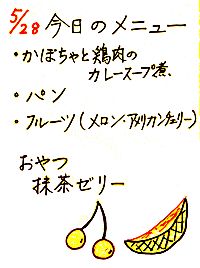 5/28 今日のメニュー
・かぼちゃと鶏肉の
カレースープ煮、
・パン
・フルーツ(メロン・アメリカンチェリー)
おやつ
抹茶ゼリー